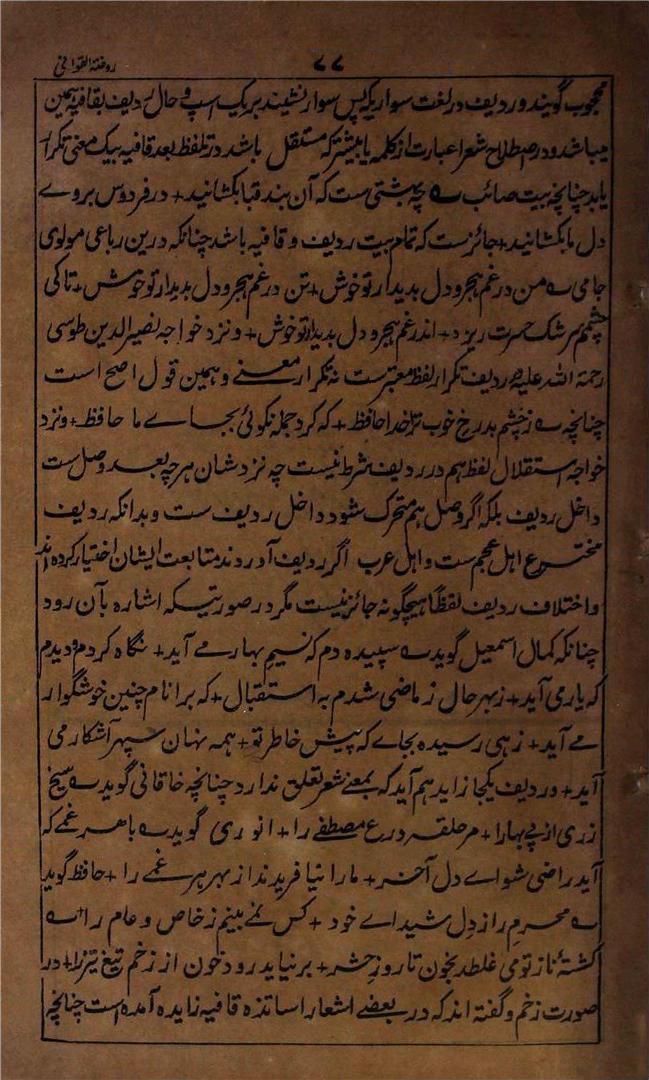 روضة القوافی
۷۷
محجوب گویند و ردیف در لغت سواریکه پس سوار نشیند بر یک اسپ و حال ردیف بقافیه همین
میباشد و در اصطلاح شعرا عبارت از کلمه یا بیشتر که مستقل باشد در تلفظ بعد قافیه بیک معنی تکرار
یابد چنانچه بیت صائب ؎ چه بهشتی ست که آن بند قبا بکشانید + در فردوس بروے
دل ما بکشانید + جائزست که تمام بیت ردیف و قافیه باشد چنانکه درین رباعی مولوی
جامی ؎ من در غم هجر و دل بدیدار تو خوش + تن در غم هجر و دل بدیدار تو خوش + تا کی
چشم سرشک حسرت ریزد + اندر غم هجر و دل بدیدار تو خوش + و نزد خواجه نصیر الدین طوسی
رحمة الله علیه در ردیف تکرار لفظ معتبرست نه تکرار معنے و همین قول اصح است
چنانچه ؎ ز چشم بد رخ خوب ترا خدا حافظ + که کرد جمله نکوئی بجاے ما حافظ + و نزد
خواجه استقلال لفظ هم در ردیف شرط نیست چه نزد شان هر چه بعد وصل ست
داخل ردیف بلکه اگر وصل هم متحرک شود داخل ردیف ست و بدانکه ردیف
مخترع اهل عجم ست و اهل عرب اگر ردیف آوردند متابعت ایشان اختیار کرده اند
و اختلاف ردیف لفظاً هیچگونه جائز نیست مگر در صورتیکه اشاره بآن رود
چنانکه کمال اسمعیل گوید ؎ سپیده دم که نسیم بهار مے آید + نگاه کردم و دیدم
که یار می آید + ز بهر حال ز ماضی شدم به استقبال + که برانام چنین خوشگوار
مے آید + زهی رسیده بجاے که پیش خاطر تو + همه نهان سپهر آشکار می
آید + و ردیف یکجا زاید هم آید که بمعنے شعر تعلق ندارد چنانچه خاقانی گوید ؎ سیخ
زری از پے بهارا + مر حلقه درع مصطفے را + انوری گوید ؎ با هر غمے که
آید راضی شو اے دل آخر + مارا نیافریدند از بهر هر غمے را + حافظ گوید
؎ محرم راز دل شیداے خود + کس نمے بینم ز خاص و عام را + ؎
کشتهٔ ناز تو می غلطد بخون تا روز حشر + بر نیاید رود خون از زخم تیغ تیز را + در
صورت زخم و گفته اند که در بعضے اشعار اساتذه قافیه زایده آمده است چنانچه